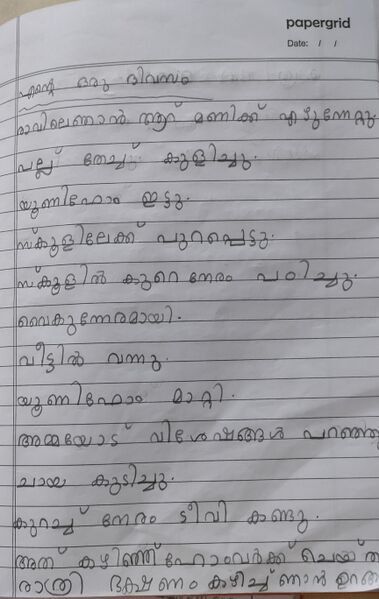 papergrid
Date: / /
എന്റെ ഒരു ദിവസം
രാവിലെഞാൻ ആറ് മണിക്ക് എഴുന്നേറ്റു
പല്ല് തേച്ച് കുളിച്ചു.
യൂണിഫോം ഇട്ടു.
സ്കൂളിലേക്ക് പുറപ്പെട്ടു.
സ്കൂളിൽ കുറെ നേരം പഠിച്ചു.
വൈകുന്നേരമായി.
വീട്ടിൽ വന്നു.
യൂണിഫോം മാറ്റി.
അമ്മയോട് വിശേഷങ്ങൾ പറഞ്ഞു
ചായ കുടിച്ചു.
കുറച്ച് നേരം ടീവി കണ്ടു.
അത് കഴിഞ്ഞ് ഹോംവർക്ക് ചെയ്ത
രാത്രി ഭക്ഷണം കഴിച്ച് ഞാൻ ഉറങ്ങ